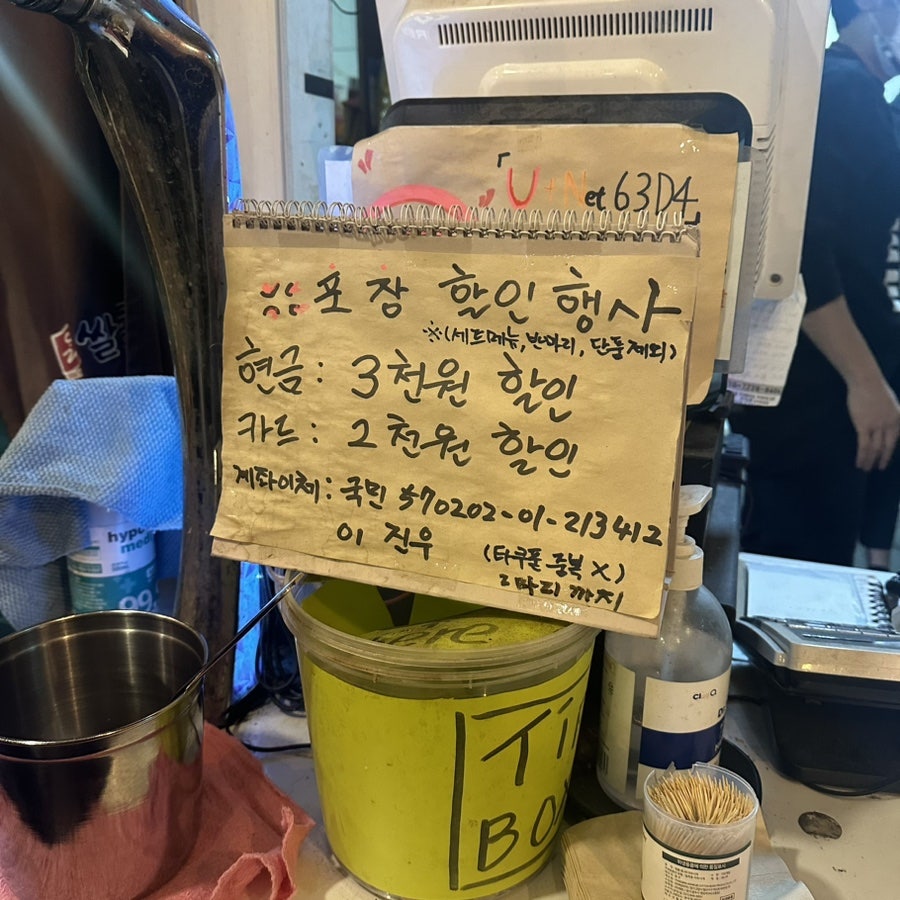 「U+Net63D4」
포장 할인 행사
※(세트메뉴, 반마리, 단품 제외)
현금: 3천원 할인
카드: 2천원 할인
계좌이체: 국민 570202-01-213412
이 진우 (타쿠폰 중복 X)
2마리 까지
쌀
Tip
BOX